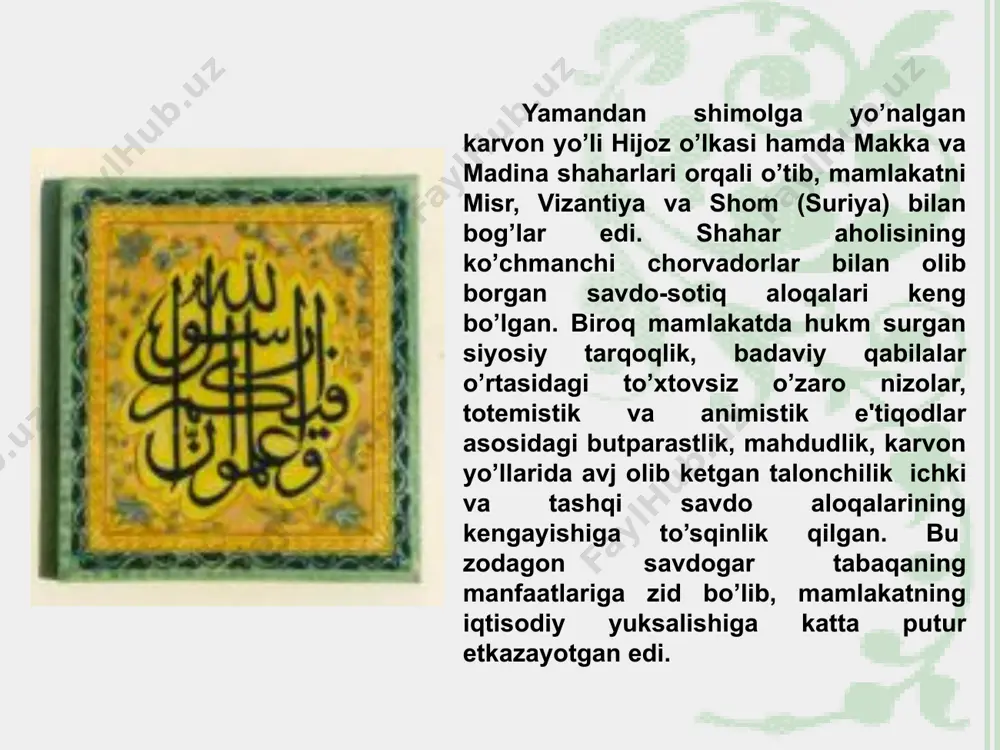 Yamandan shimolga yo’nalgan
karvon yo’li Hijoz o’lkasi hamda Makka va
Madina shaharlari orqali o’tib, mamlakatni
Misr, Vizantiya va Shom (Suriya) bilan
bog’lar edi. Shahar aholisining
ko’chmanchi chorvadorlar bilan olib
borgan savdo-sotiq aloqalari keng
bo’lgan. Biroq mamlakatda hukm surgan
siyosiy tarqoqlik, badaviy qabilalar
o’rtasidagi to’xtovsiz o’zaro nizolar,
totemistik va animistik e'tiqodlar
asosidagi butparastlik, mahdudlik, karvon
yo’llarida avj olib ketgan talonchilik ichki
va tashqi savdo aloqalarining
kengayishiga to’sqinlik qilgan. Bu
zodagon savdogar tabaqaning
manfaatlariga zid bo’lib, mamlakatning
iqtisodiy yuksalishiga katta putur
etkazayotgan edi.
FaylHub.uz
FaylHub.uz
FaylHub.uz
FaylHub.uz
الله
رسول
فيكم